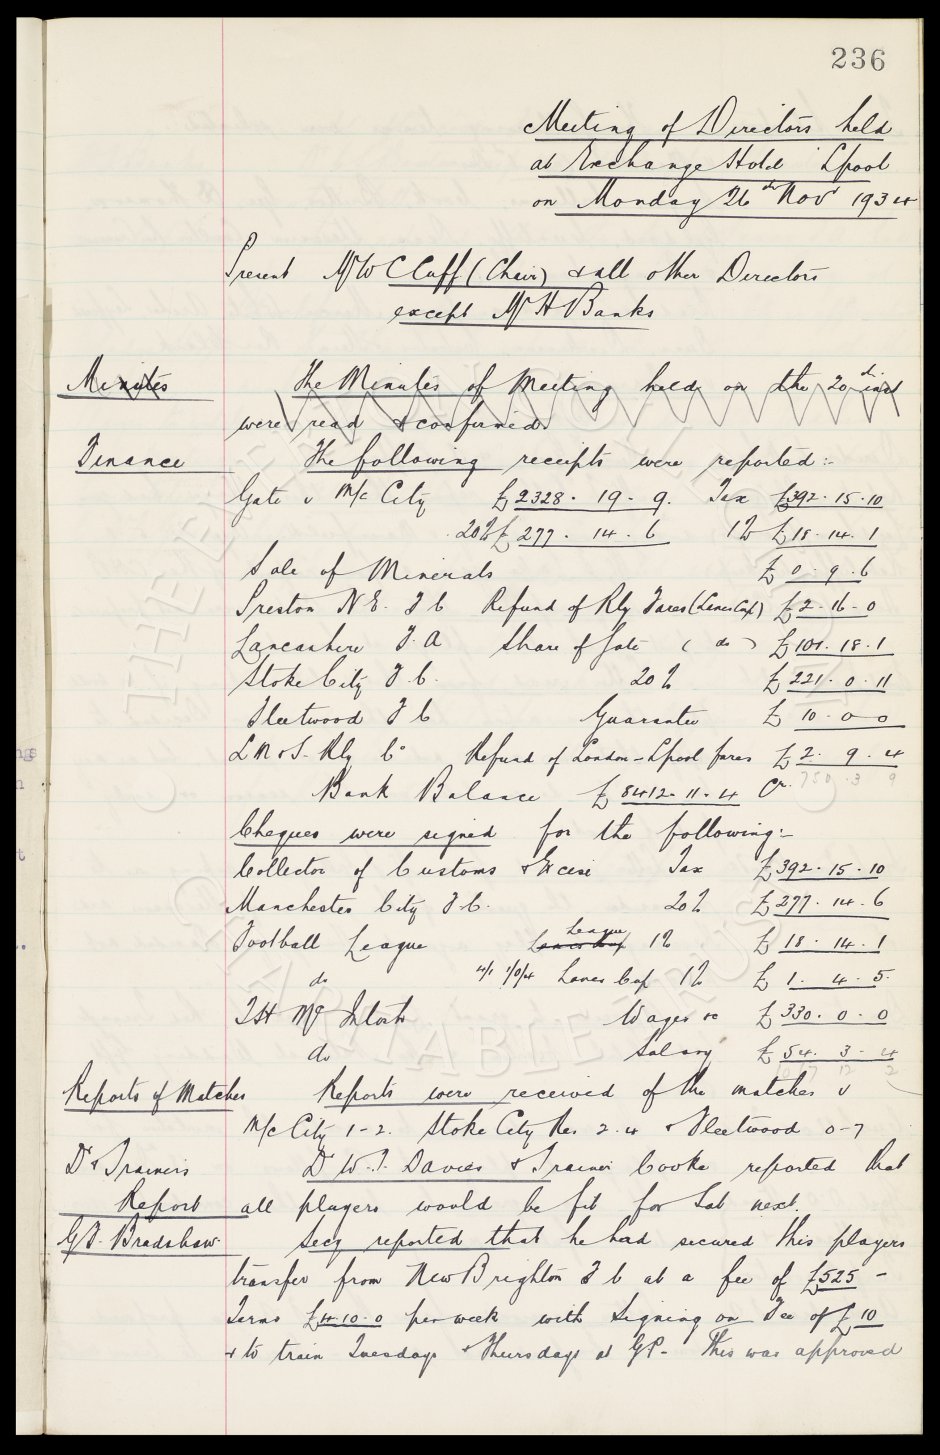 236
Meeting of Directors held
at Exchange Hotel L'pool
on Monday 26th Nov 1934
Present Mr W C Cuff (Chair) & all other Directors
except Mr H Banks
Minutes The Minutes of Meeting held on the 20th inst
were read & confirmed.
Finance The following receipts were reported:-
Gate v M/c City £2328. 19. 9. Tax £392. 15. 10
20% £277. 14. 6 1% £18. 14. 1
Sale of Minerals £0. 9. 6
Preston N.E. F C Refund of Rly Fares (Lancs Cup) £2. 16. 0
Lancashire F. A Share of Gate ( do ) £101. 18. 1
Stoke City F. C. 20% £221. 0. 11
Fleetwood F C Guarantee £10. 0 0
L M & S. Rly Co Refund of London - L'pool fares £2. 9. 4
Bank Balance £8412. 11. 4 Cr. 750. 3 9
Cheques were signed for the following:-
Collector of Customs & Excise Tax £392. 15. 10
Manchester City F. C. 20% £277. 14. 6
Football League Lancs Cup League 1% £18. 14. 1
do Lancs Cup 1% £1. 4. 5.
T H McIntosh Wages &c £330. 0. 0
do Salary £54. 3. 4
Reports of Matches Reports were received of the matches v
M/c City 1-2. Stoke City Res 2. 4 & Fleetwood 0-7
Dr & Trainers Dr W. P. Davies & Trainer Cooke reported that
Report all players would be fit for Sat next.
G F. Bradshaw. Secy reported that he had secured this players
transfer from New Brighton F C at a fee of £525 -
Terms £4. 10. 0 per week with Signing on Fee of £10
& to train Tuesdays & Thursdays at G.P- This was approved
THE EVERTON COLLECTION
CHARITABLE TRUST